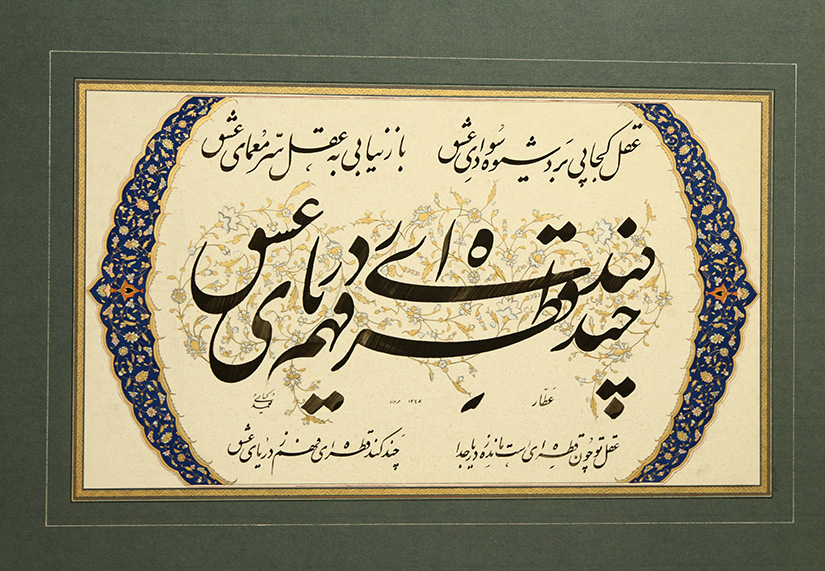 عقل کجا پی برد شیوه سودای عشق
باز نیابی به عقل سرّ معمای عشق
چند کند قطره ای فهم ز دریای عشق
عطار
عقل تو چون قطره ای است مانده ز دریا جدا
چند کند قطره ای فهم ز دریای عشق